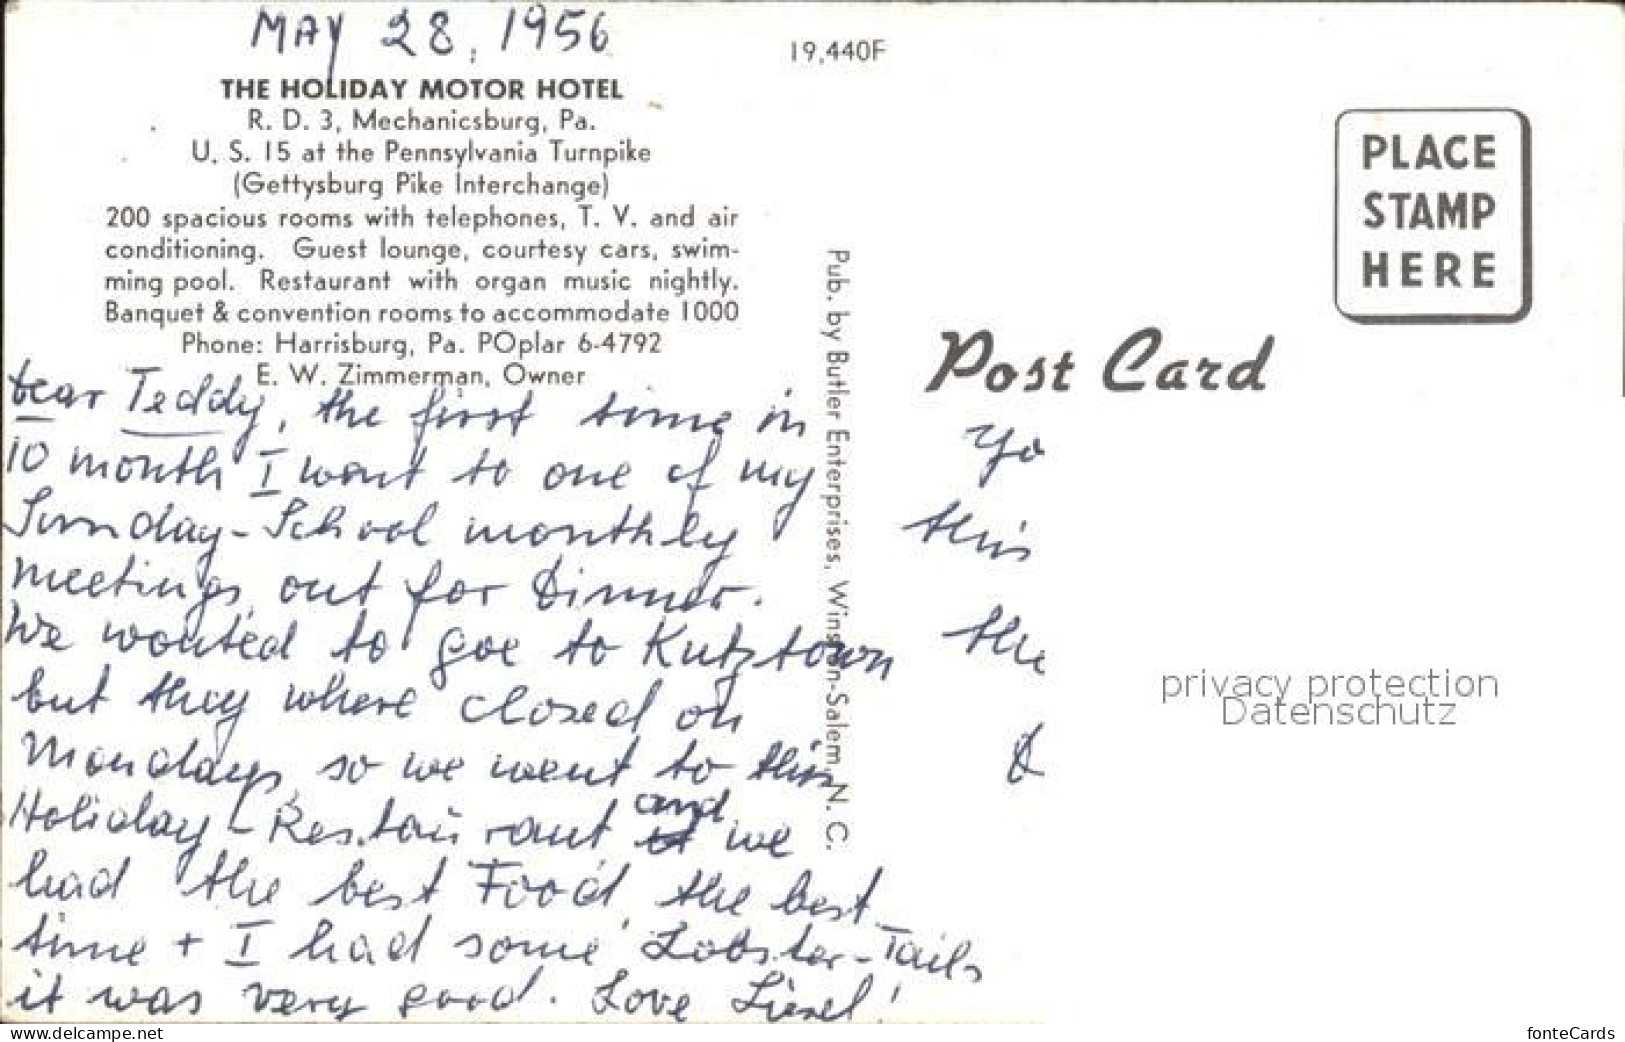 MAY 28, 1956
19,440F
THE HOLIDAY MOTOR HOTEL
R. D. 3, Mechanicsburg, Pa.
U. S. 15 at the Pennsylvania Turnpike
(Gettysburg Pike Interchange)
200 spacious rooms with telephones, T. V. and air
conditioning. Guest lounge, courtesy cars, swim-
ming pool. Restaurant with organ music nightly.
Banquet & convention rooms to accommodate 1000
Phone: Harrisburg, Pa. POplar 6-4792
E. W. Zimmerman, Owner
Dear Teddy, the first time in
10 month I went to one of my
Sunday-School monthly
meetings, out for Dinner.
We wanted to goe to Kutztown
but they where closed on
Mondays, so we went to this
Holiday-Restaurant and we
had the best Food, the best
time + I had some Lobster-Tails
it was very good. Love Liesel!
Pub. by Butler Enterprises, Winston-Salem, N. C.
PLACE
STAMP
HERE
Post Card
Yo
this
the
privacy protection
Datenschutz
www.delcampe.net
fonteCards